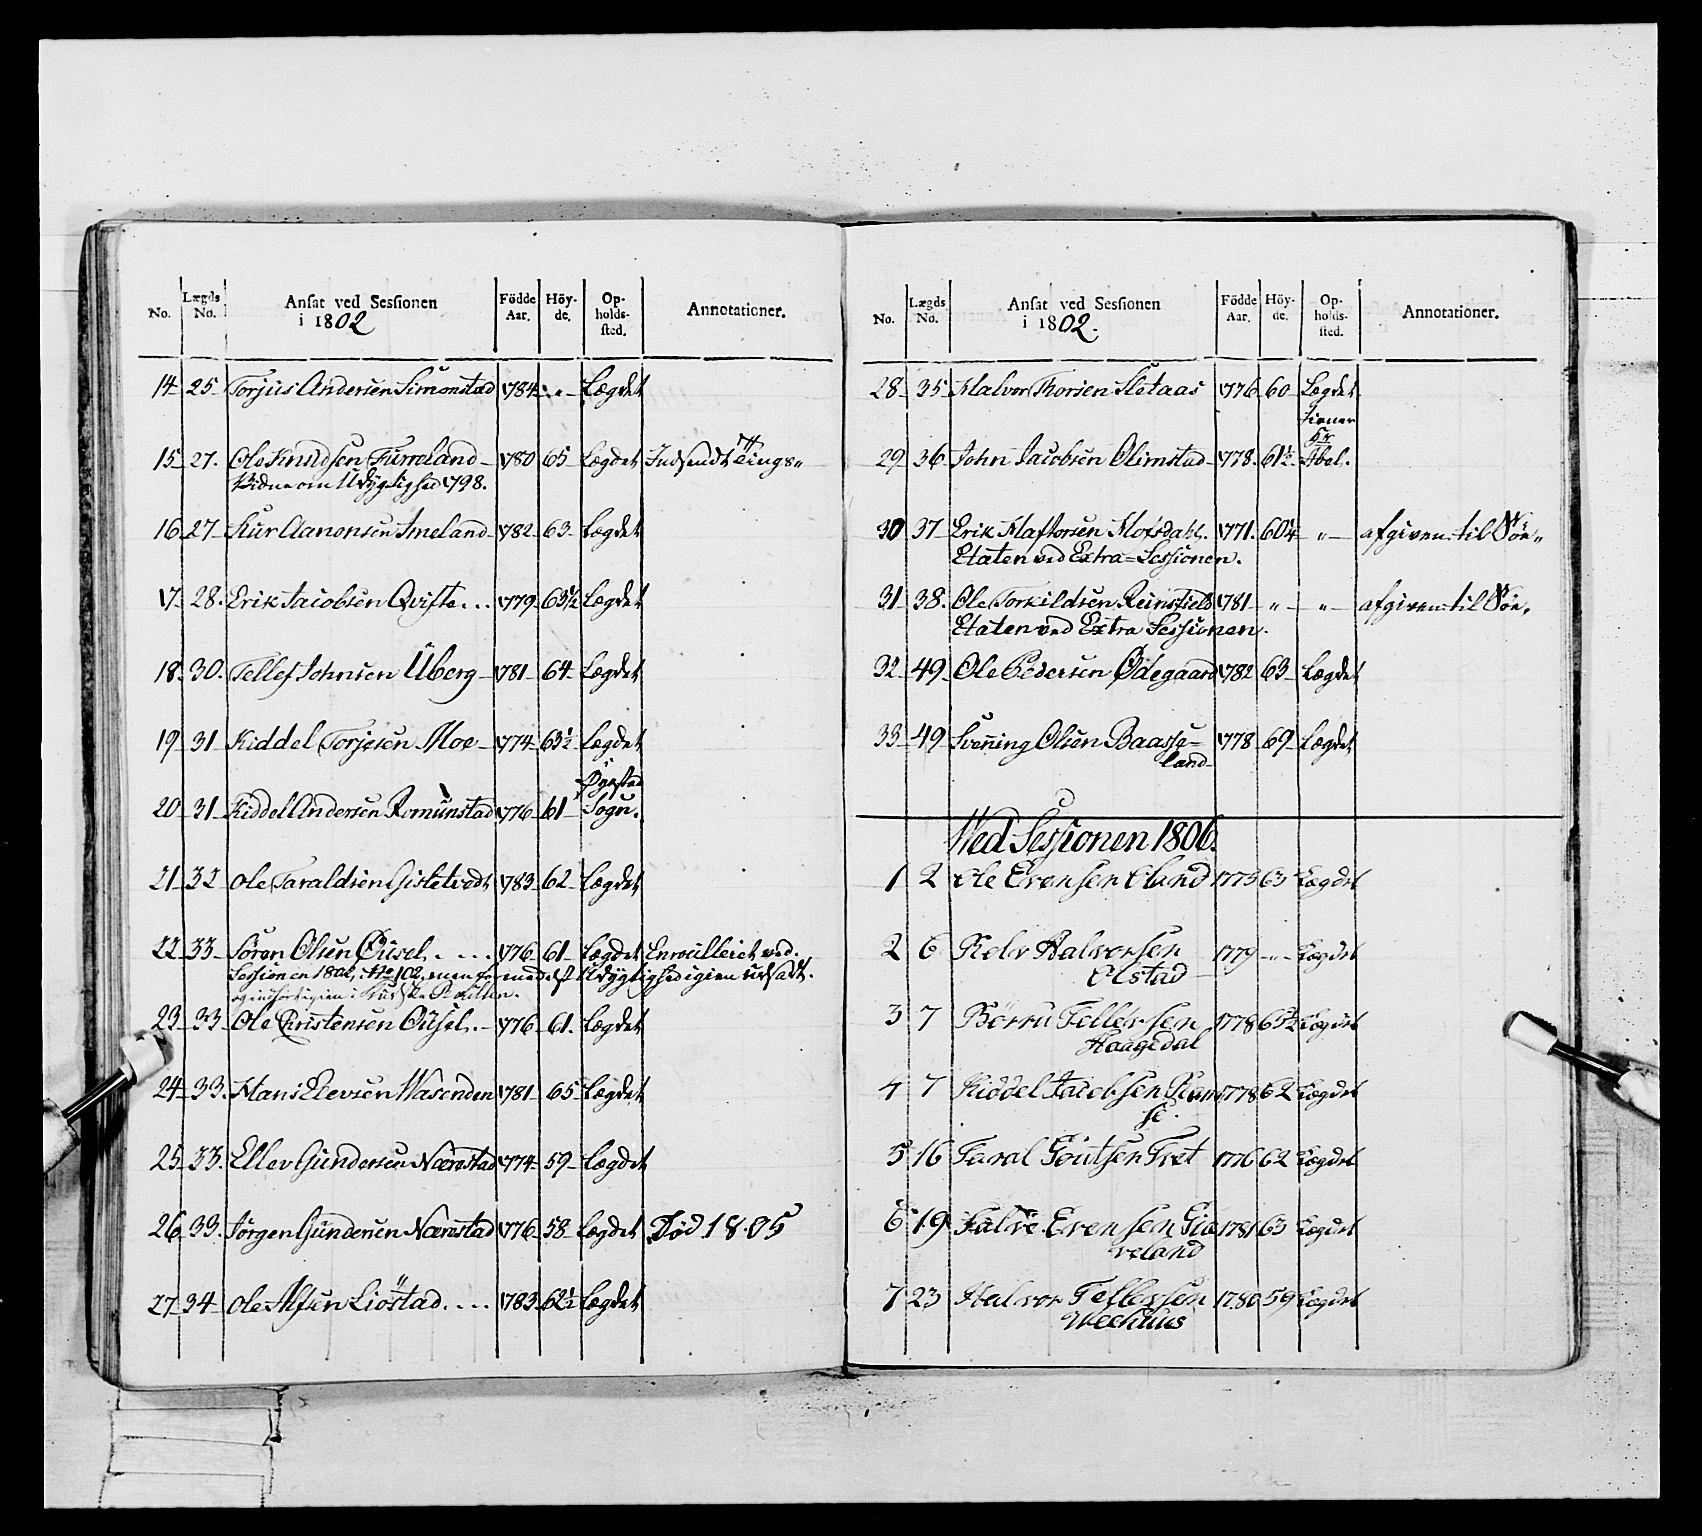 No. Lægds No. Ansat ved Sessionen i 1802 Födde Aar. Höy-de. Op-holds-sted. Annotationer.
14 25 Torjus Andersen Simonstad 1784 - " - Lægdet
15 27. Ole Knudsen Furreland 1780 65 Lægdet Indsendt Tings„
Vidne om Udygtighed 1798.
16 27 Siur Aanonsen Imeland 1782 63 Lægdet
17 28. Erik Jacobsen Qviste... 1779 63½ Lægdet
18 30. Tellef Johnsen Uberg 1781 64 Lægdet
19 31 Kiddel Torjesen Moe 1774 63½ Lægdet
Øyestad
20 31 Kiddel Andersen Romunstad 1776 61 Sogn.
21 32 Ole Taraldsen Gisletvedt 1783 62 Lægdet
22 33 Sören Olsen Øusel.... 1776 61 Lægdet Enroulleret ved
Sessionen 1802, No 102, men formedelst Udygtighed igien udsadt.
og indført igien i Rullen.
23 33 Ole Christensen Ousel. 1776 61. Lægdet
24 33. Hans Elevsen Wasenden 1781 65 Lægdet
25 33. Ellev Gundersen Nærestad 1774 59 Lægdet
26 33. Jörgen Gundersen Nærestad 1776 58 Lægdet Död 1805
27 34 Ole Alfsen Liöstad.... 1783 62½ Lægdet
No. Lægds No. Ansat ved Sessionen i 1802. Födde Aar. Höy-de. Op-holds-sted. Annotationer.
28 35 Halvor Thorsen Sletaas 1776 60 Lægdet
29 36 John Jacobsen Olimstad 1778. 61½
30 37 Erik Haftorsen Mofsdahl. 1771. 60¼ " afgiven til Söe„
Etaten ved Extra=Sessionen.
31 38. Ole Torkildsen Reinsfield 1781 " " afgiven til Söe„
Etaten ved Extra Sessionen.
32 49 Ole Pedersen Ødegaard 1782 63 Lægdet
33 49 Svenning Olsen Baasse=
land 1778 69 Lægdet
Ved Sessionen 1806.
1 2 Ole Evensen Oland 1773 63 Lægdet
2 6 Kelv Halvorsen
Olstad 1779 - " - Lægdet
3 7 Börru Tellevsen
Haagedal 1778 63½ Lægdet
4 7 Kiddel Jacobsen Ram
se. 1778 62 Lægdet
5 16 Taral Goutsen Tvet 1776 62 Lægdet
6 19 Salve Evensen Giæ
veland 1781 63 Lægdet
7 23 Halvor Tellevsen
Weehuus 1780 59 Lægdet